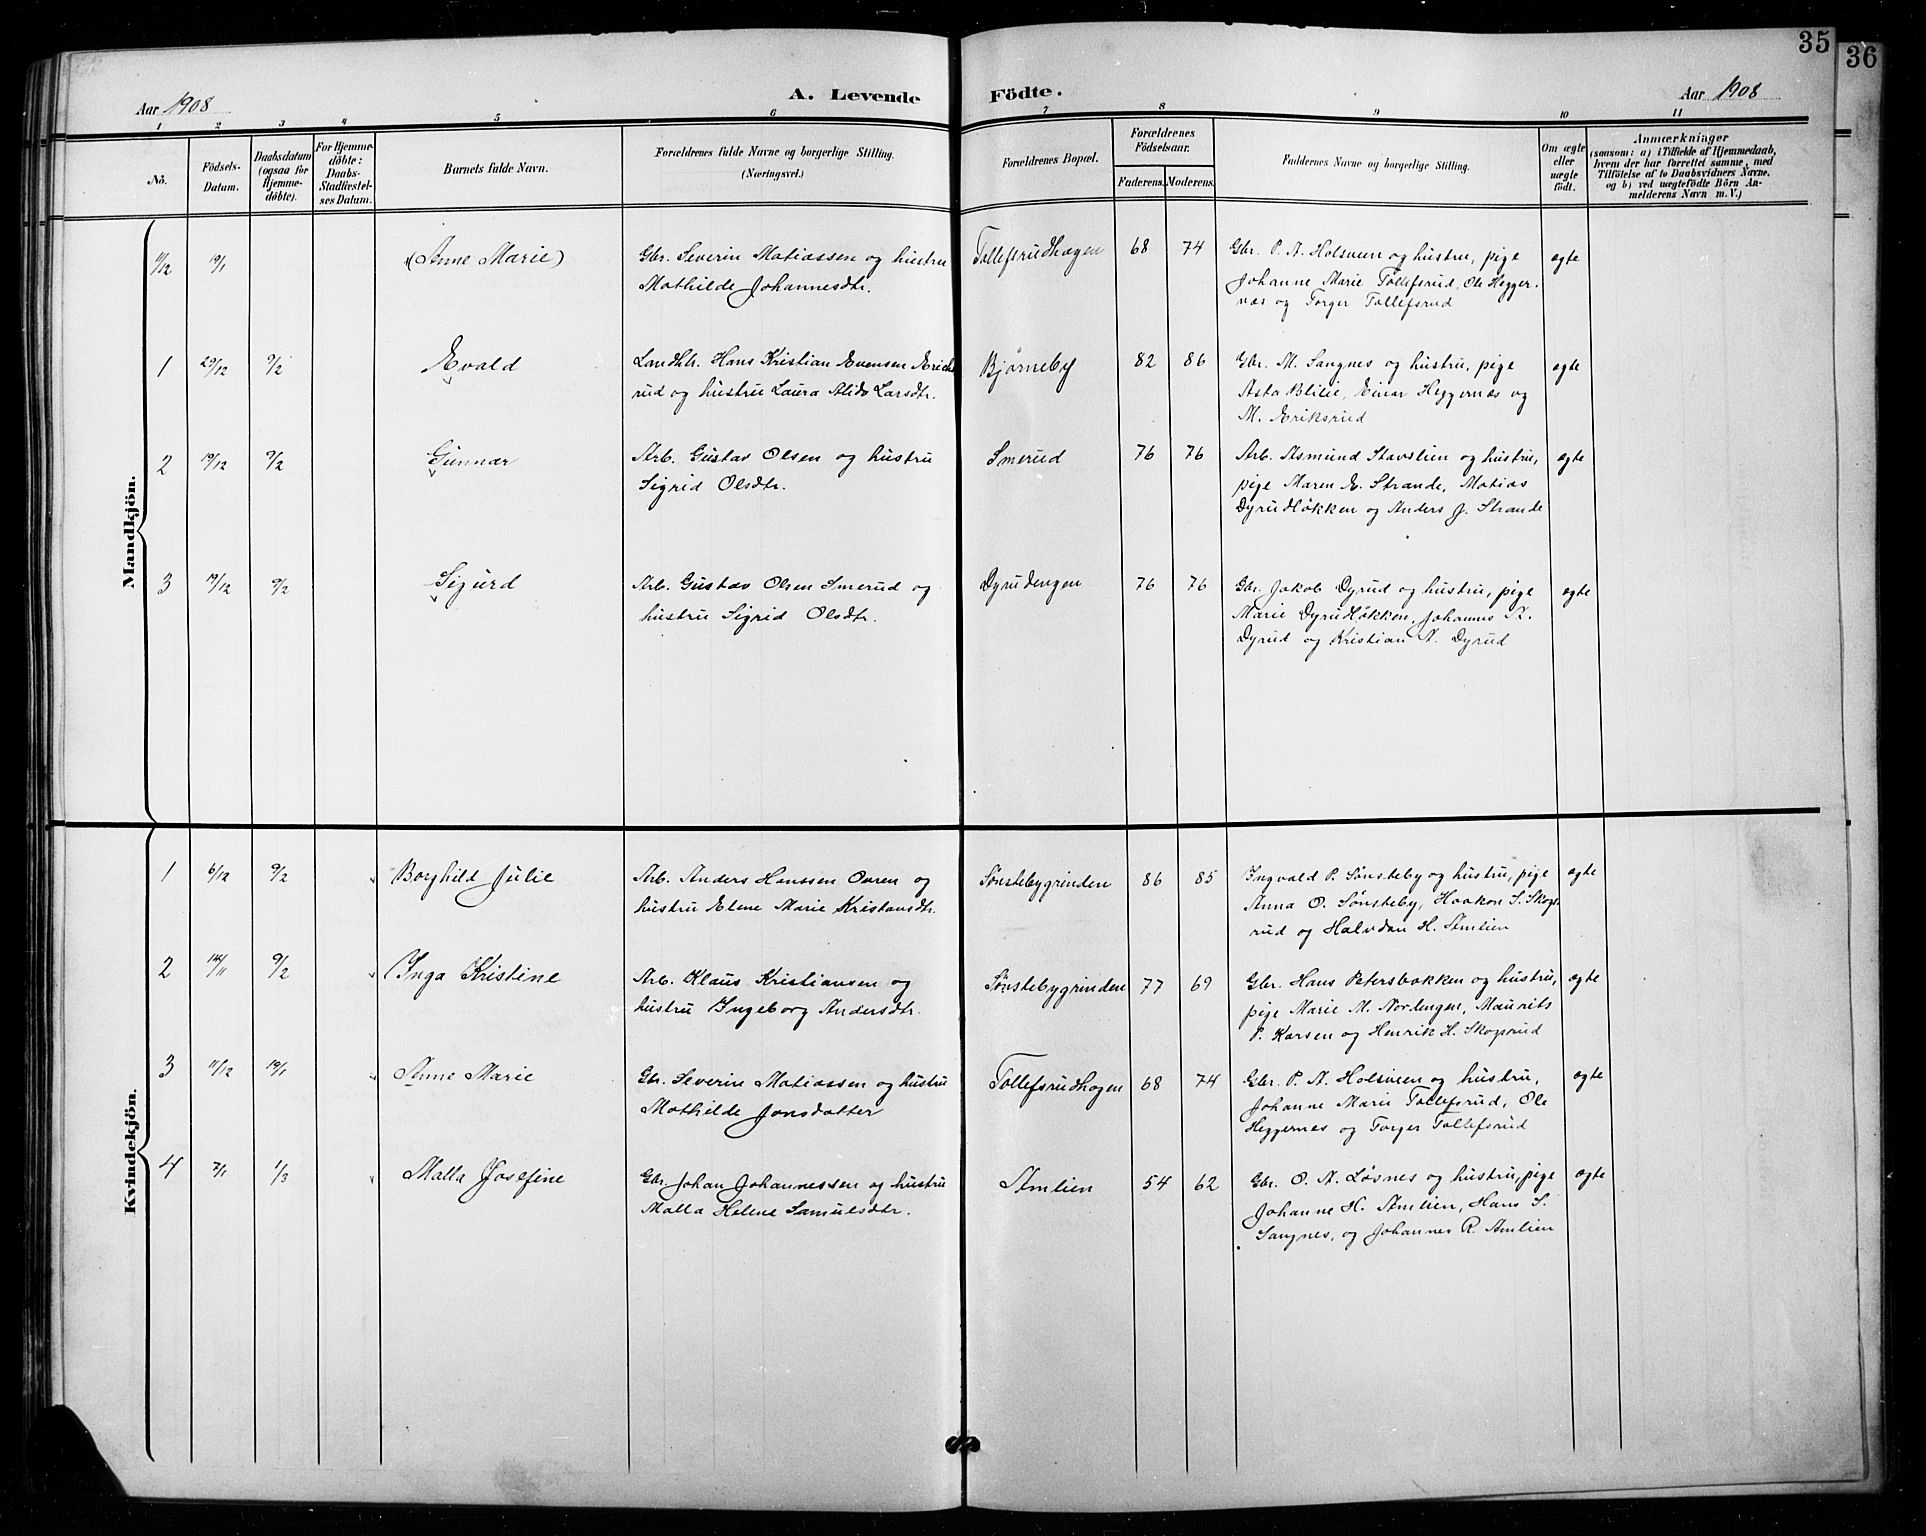 35
36
Aar 1908
A. Levende Födte.
Aar 1908
1 2 3 4 5 6 7 8 9 10 11
No.
Födsels-Datum.
Daabsdatum (ogsaa for Hjemmedøbte).
For Hjemmedøbte: Daabs-Stadfæstelses Datum.
Barnets fulde Navn.
Forældrenes fulde Navne og borgerlige Stilling.
(Næringsvei.)
Forældrenes Bopæl.
Forældrenes Födselsaar.
Faderens. Moderens.
Faddernes Navne og borgerlige Stilling.
Om ægte eller uægte födt.
Anmærkninger
(saasom: a) i Tilfælde af Hjemmedaab,
hvem der har forrettet samme, med
Tilföielse af to Daabsvidners Navne,
og b) ved uægtefödte Börn An-
melderens Navn m. V.)
Mandkjön.
11/12 19/1 (Anne Marie) Gbr. Severin Matiassen og hustru Tollefsrudhagen 68 74 Gbr. P. A. Holsveen og hustru, pige ægte
Mathilde Johannesdtr. Johanne Marie Tollefsrud, Ole Hegger-
næs og Torger Tollefsrud
1 29/12 9/2 Evald Landhlr. Hans Kristian Evensen Erics Bjørneby 82 86 Gbr. M. Sangnes og hustru, pige ægte
rud og hustru Laura Alida Larsdtr. Asta Blilie, Einar Heggernæs og
M. Eriksrud
2 19/12 9/2 Gunnar Arb. Gustav Olsen og hustru Smerud 76 76 Arb. Asmund Stavslien og hustru, ægte
Sigrid Olsdtr. pige Maren E. Strande, Matias
Dyrudløkken og Anders J. Strande
3 19/12 9/2 Sigurd Arb. Gustav Olsen Smerud og Dyrudengen 76 76 Gbr. Jakob Dyrud og hustru, pige ægte
hustru Sigrid Olsdtr. Marie Dyrudløkken, Johannes K.
Dyrud og Kristian A. Dyrud
Kvindekjön.
1 6/12 9/2 Borghild Julie Arb. Anders Hanssen Ouren og Sønstebygrinden 86 85 Ingvald P. Sønsteby og hustru, pige ægte
hustru Elene Marie Kristansdtr. Anna O. Sønsteby, Haakon S. Skogs
rud og Halvdan H. Amlien
2 14/11 9/2 Inga Kristine Arb. Klaus Kristiansen og Sønstebygrinden 77 69 Gbr. Hans Petersbakken og hustru, ægte
hustru Ingeborg Andersdtr. pige Marie M. Nordengen, Maurits
P. Karsen og Henrik H. Skogsrud
3 11/12 19/1 Anne Marie Gbr. Severin Matiassen og hustru Tollefsrudhagen 68 74 Gbr. P. A. Holsveen og hustru, ægte
Mathilde Jonsdatter Johanne Marie Tollefsrud, Ole
Heggernes og Torger Tollefsrud
4 7/1 1/3 Malla Josefine Gbr. Johan Johannessen og hustru Amlien 54 62 Gbr. O. A. Løsnes og hustru, pige ægte
Malla Helene Samuelsdtr. Johanne H. Amlien, Hans S.
Sangnes, og Johannes R. Amlien